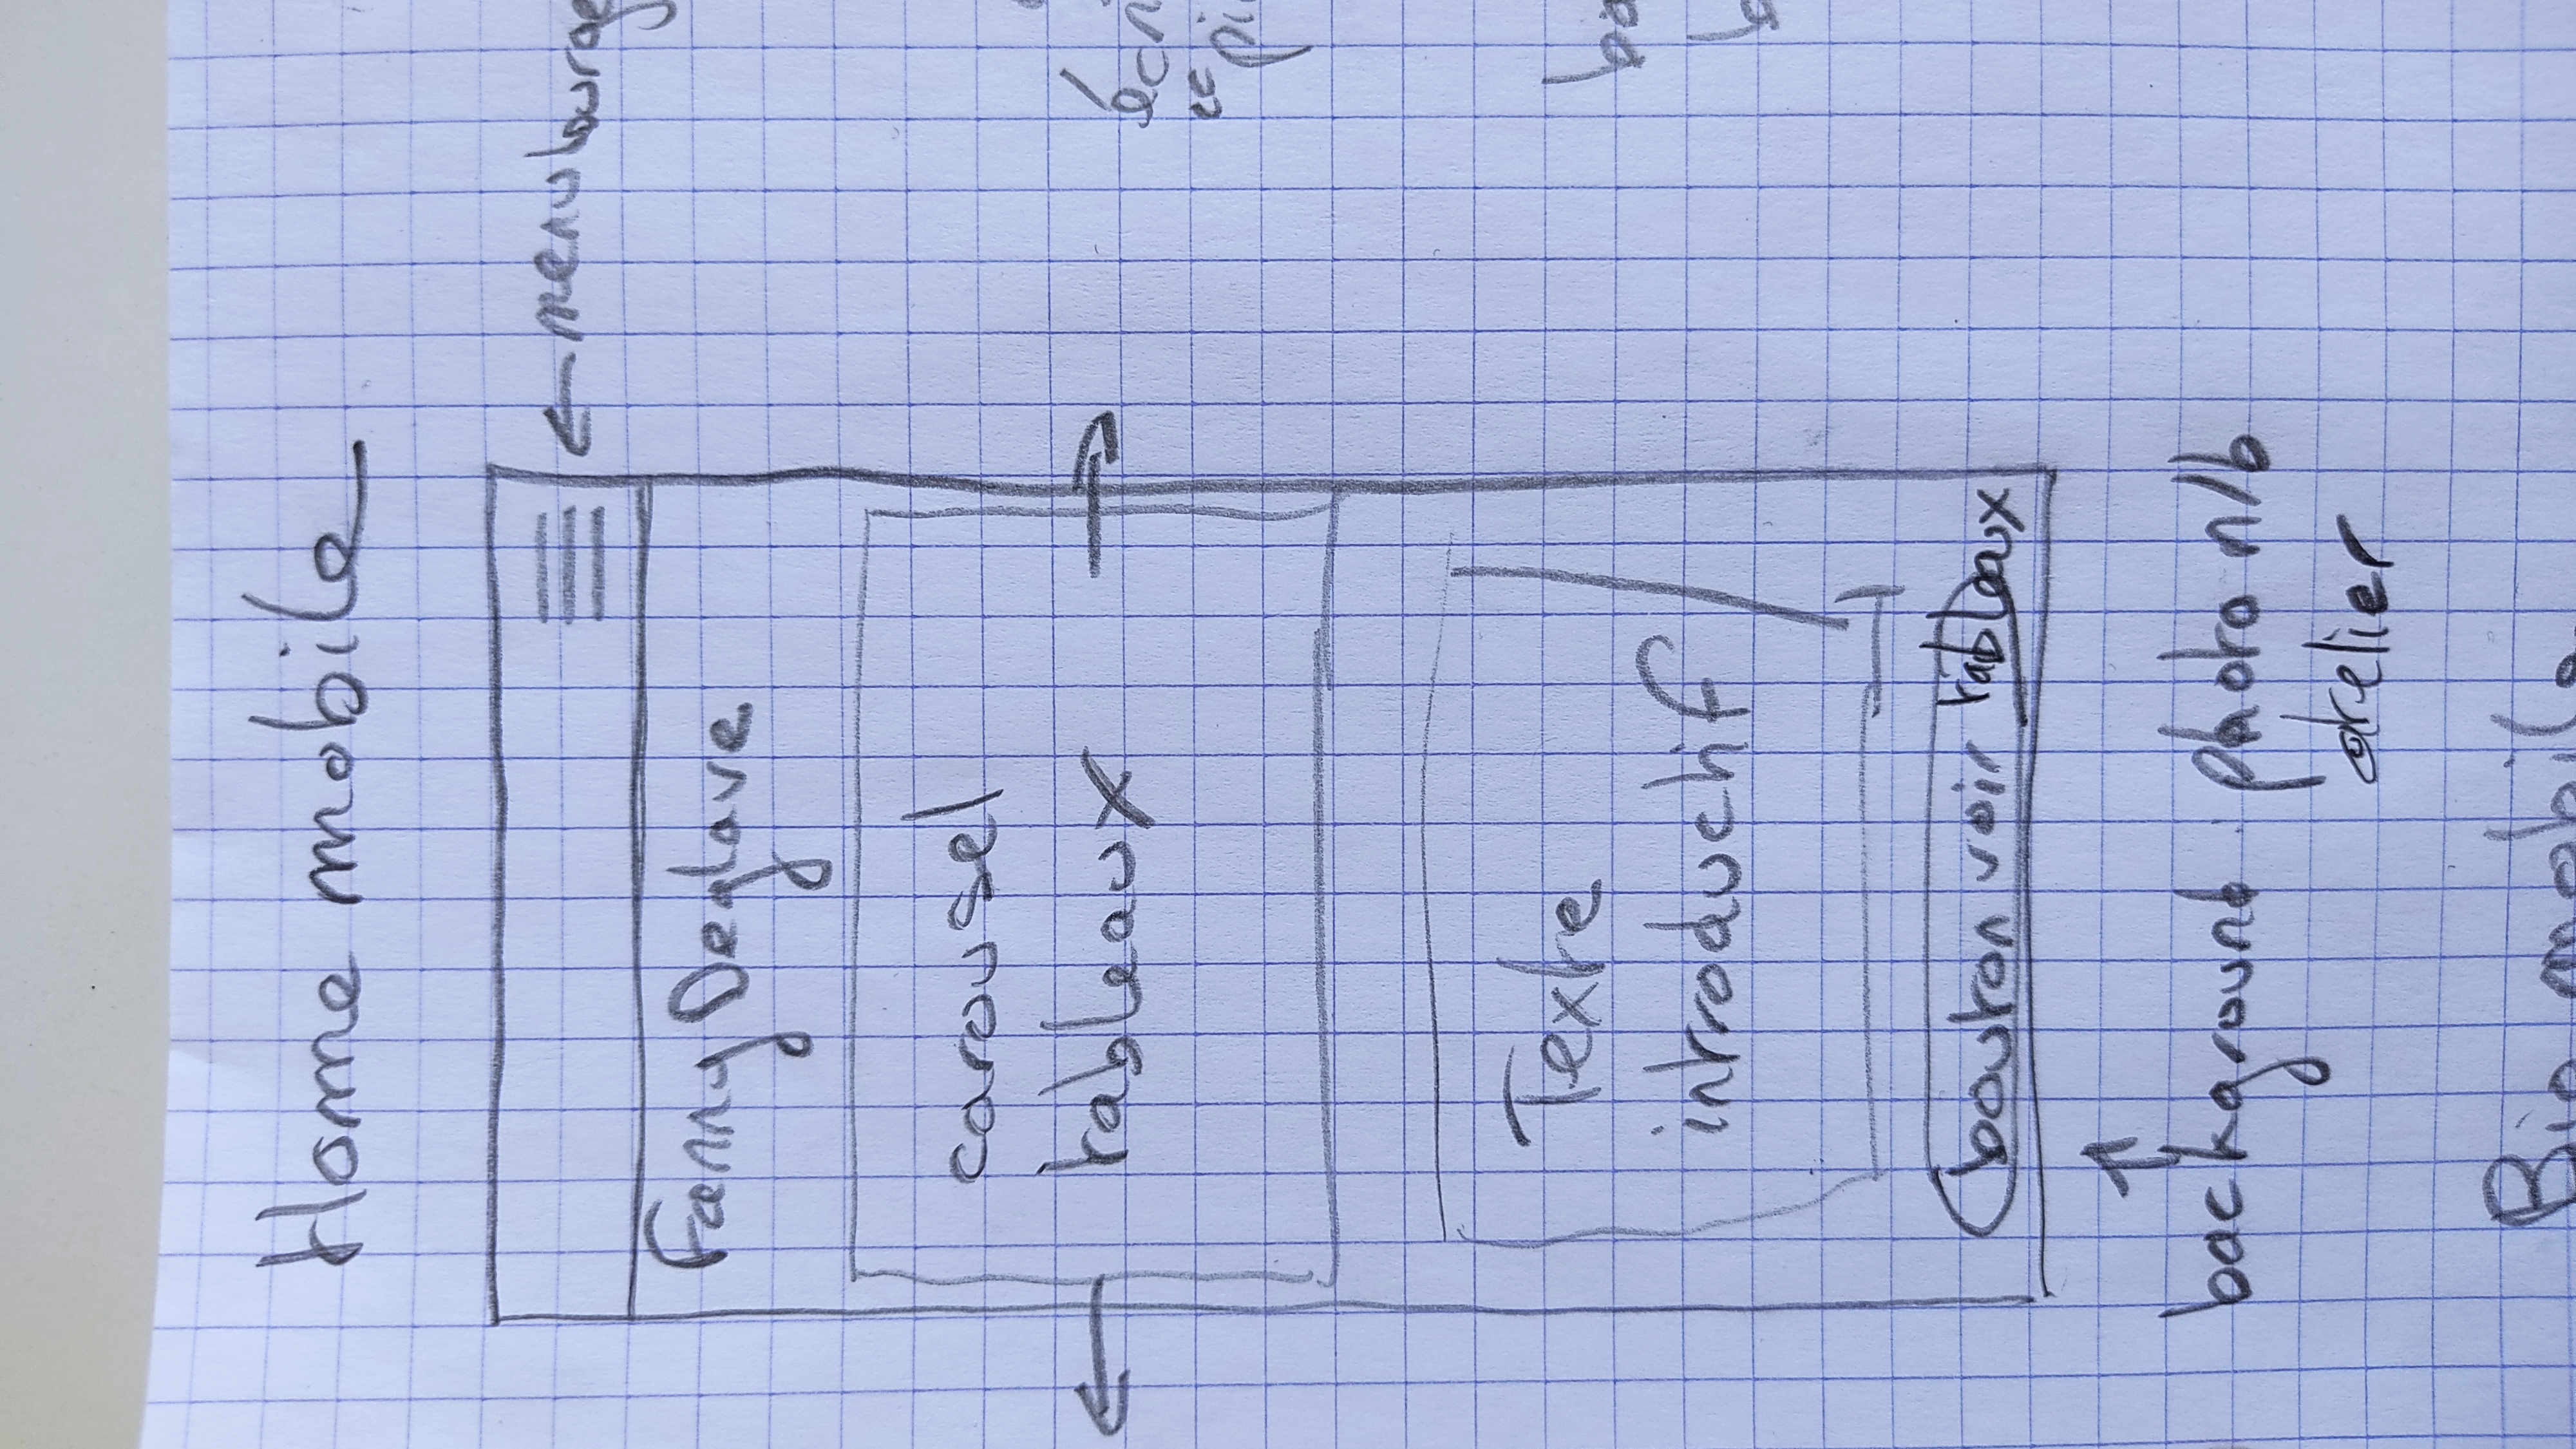 Home mobile
← menu burge
Fanny Deglave
carousel
tableaux
écri
"pi
Texte
introductif
ba
b
bouton voir tableaux
background photo n/b
atelier
Bio mobile